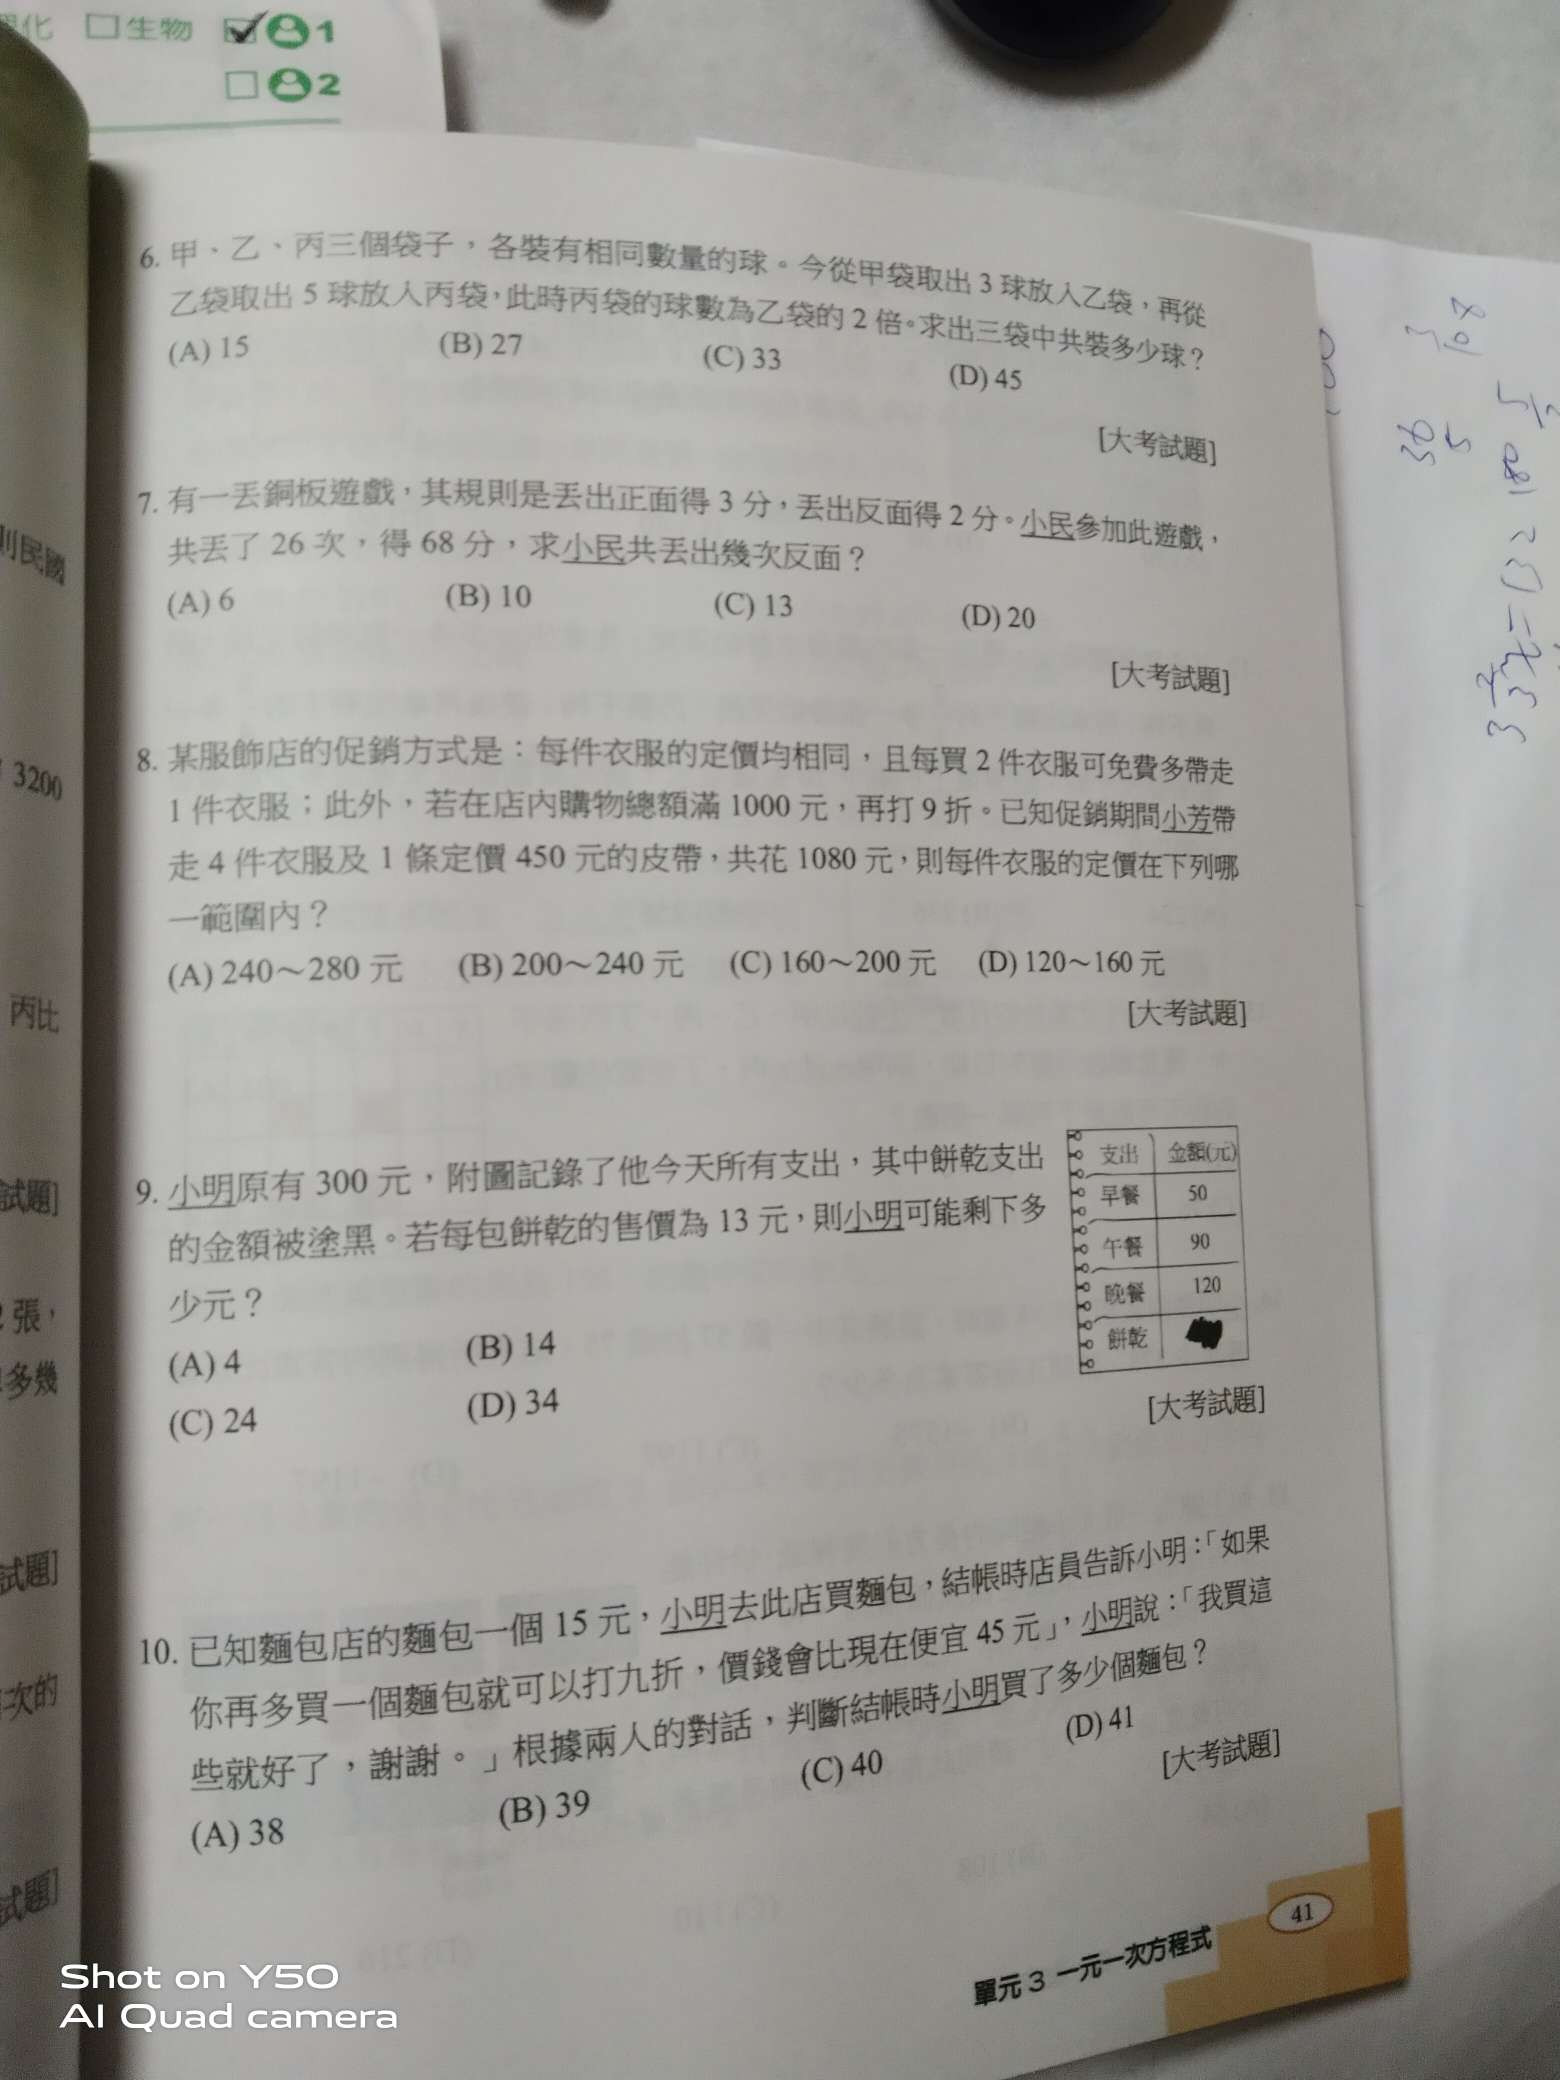 化 □生物 1
2
6. 甲、乙、丙三個袋子，各裝有相同數量的球。今從甲袋取出 3 球放入乙袋，再從
乙袋取出 5 球放入丙袋，此時丙袋的球數為乙袋的 2 倍。求出三袋中共裝多少球？
(A) 15 (B) 27 (C) 33 (D) 45
[大考試題]
7. 有一丟銅板遊戲，其規則是丟出正面得 3 分，丟出反面得 2 分。小民參加此遊戲，
共丟了 26 次，得 68 分，求小民共丟出幾次反面？
(A) 6 (B) 10 (C) 13 (D) 20
[大考試題]
8. 某服飾店的促銷方式是：每件衣服的定價均相同，且每買 2 件衣服可免費多帶走
1 件衣服；此外，若在店內購物總額滿 1000 元，再打 9 折。已知促銷期間小芳帶
走 4 件衣服及 1 條定價 450 元的皮帶，共花 1080 元，則每件衣服的定價在下列哪
一範圍內？
(A) 240～280 元 (B) 200～240 元 (C) 160～200 元 (D) 120～160 元
[大考試題]
9. 小明原有 300 元，附圖記錄了他今天所有支出，其中餅乾支出
的金額被塗黑。若每包餅乾的售價為 13 元，則小明可能剩下多
少元？
(A) 4 (B) 14
(C) 24 (D) 34
支出 金額(元)
早餐 50
午餐 90
晚餐 120
餅乾
[大考試題]
10. 已知麵包店的麵包一個 15 元，小明去此店買麵包，結帳時店員告訴小明：「如果
你再多買一個麵包就可以打九折，價錢會比現在便宜 45 元」，小明說：「我買這
些就好了，謝謝。」根據兩人的對話，判斷結帳時小明買了多少個麵包？
(A) 38 (B) 39 (C) 40 (D) 41
[大考試題]
單元 3 一元一次方程式 41
則民國
3200
丙比
試題]
張，
多幾
試題]
次的
試題]
Shot on Y50
AI Quad camera